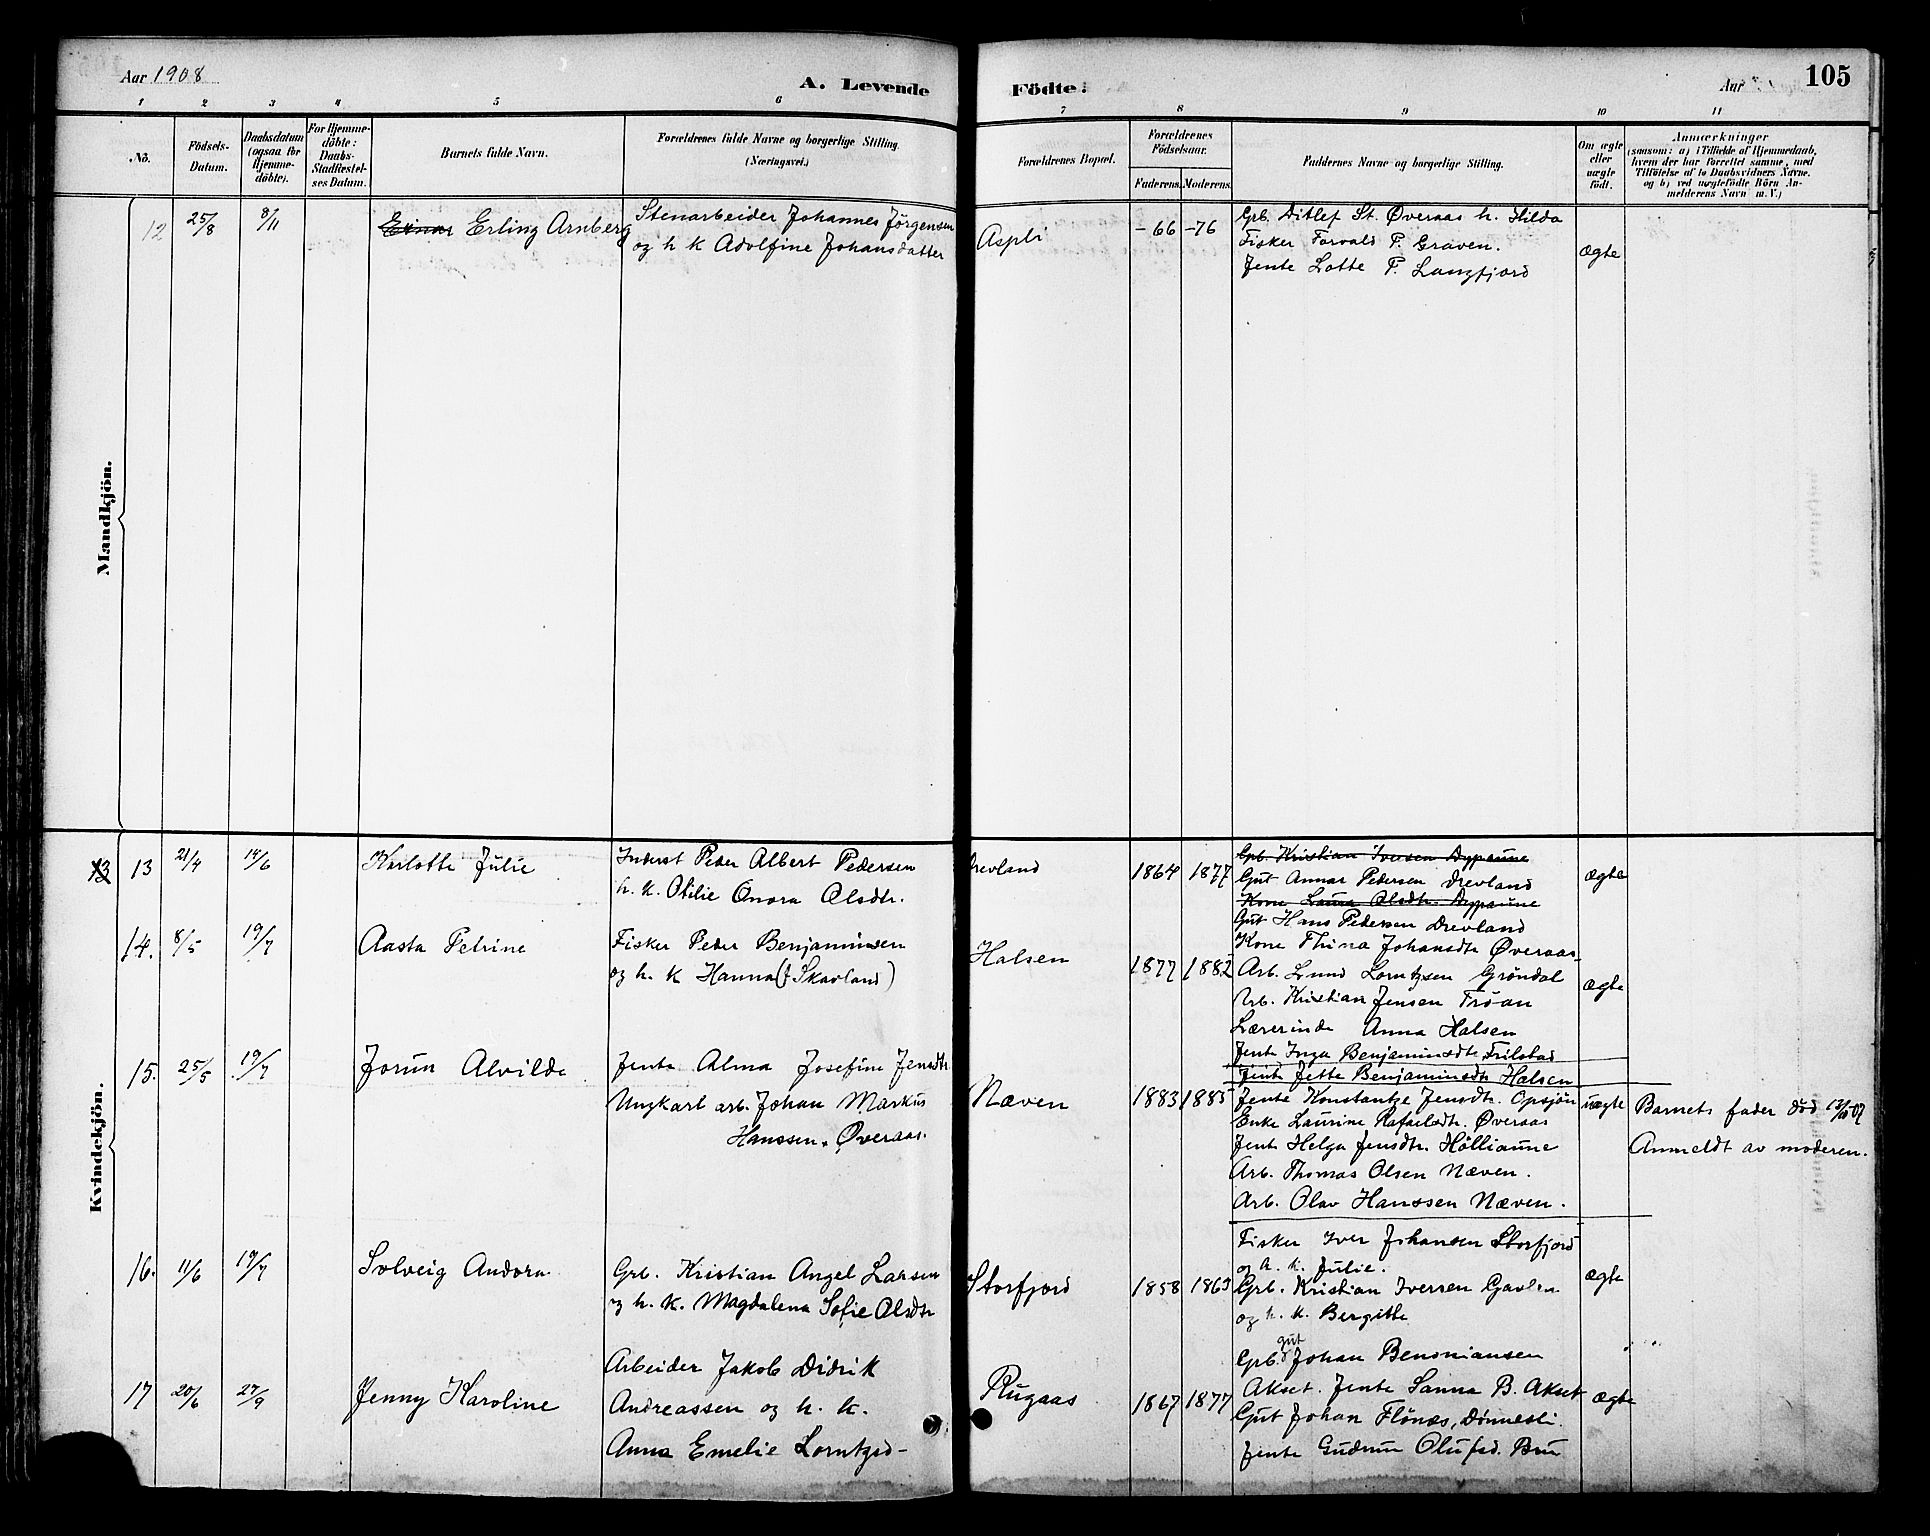 Aar 1908
A. Levende
Födte.
Aar
105
1 2 3 4 5 6 7 8 9 10 11
No.
Födsels-Datum.
Daabsdatum (ogsaa for Hjemme-döbte).
For Hjemme-döbte: Daabs-Stadfæstel-ses Datum.
Barnets fulde Navn.
Forældrenes fulde Navne og borgerlige Stilling. (Næringsvei.)
Forældrenes Bopæl.
Forældrenes Födselsaar.
Faderens. Moderens.
Faddernes Navne og borgerlige Stilling.
Om ægte eller uægte födt.
Anmærkninger
(saasom: a) i Tilfælde af Hjemmedaab,
hvem der har forrettet samme, med
Tilföielse af to Daabsvidners Navne.
og b) ved uægtefödte Börn An-
melderens Navn m. V.)
Mandkjön.
12 25/8 8/11 Einar Erling Arnberg
Stenarbeider Johannes Jørgensen
og h k Adolfine Johansdatter
Aspli
-66 -76
Grb. Ditlef St. Øveraas h. Hilda
Fisker Torvald P. Graven.
Jente Lotte P. Langfjord
ægte
Kvindekjön.
13 13 21/4 14/6 Karlotte Julie
Inderst Peder Albert Pedersen
h. k. Otilie Onora Olsdtr.
Drevland
1864 1877
Grb. Kristian Iversen Dypaune
Gut Annar Pedersen Drevland
Kone Laura Olsdtr. Dypaune
Gut Hans Pedersen Drevland
Kone Thina Johansdtr Øveraas
ægte
14. 8/5 19/7 Aasta Petrine
Fisker Peder Benjaminsen
og h. k Hanna (f Skavland)
Halsen
1877 1882
Arb. Lund Lorntzsen Gröndal
Arb. Kristian Jensen Tröan
Lærerinde Anna Halsen
Jente Inga Benjaminsdtr Frilstad
Jente Jette Benjaminsdtr Halsen
ægte
15. 25/5 19/7 Jorun Alvilde
Jente Alma Josefine Jensdtr.
Ungkarl arb. Johan Markus
Hanssen. Øveraas.
Næven
1883 1885
Jente Konstantze Jensdtr. Opsjön
Enke Laurine Rafaelsdtr. Øveraas
Jente Helga Jensdtr. Hölliaune
Arb. Thomas Olsen Næven.
Arb. Olav Hanssen Næven.
uægte
Barnets fader död 13/10-07
Anmeldt av moderen.
16. 11/6 19/7 Solveig Andora
Grb. Kristian Angel Larsen
og h. k. Magdalena Sofie Olsdtr
Storfjord
1858 1863
Fisker Iver Johansen Storfjord
og h. k. Julie.
Grb. Kristian Iversen Gavlen
og h. k. Bergitte
gut
Grb. Johan Benoniansen
ægte
17 20/6 27/9 Jenny Karoline
Arbeider Jakob Didrik
Andreassen og h. k.
Anna Emelie Lorntzsd-
Rugaas
1867 1877
Akset. Jente Sanna B. Akset
Gut Johan Flönæs, Dönnesli
Jente Gudrun Olufsd. Bru
ægte